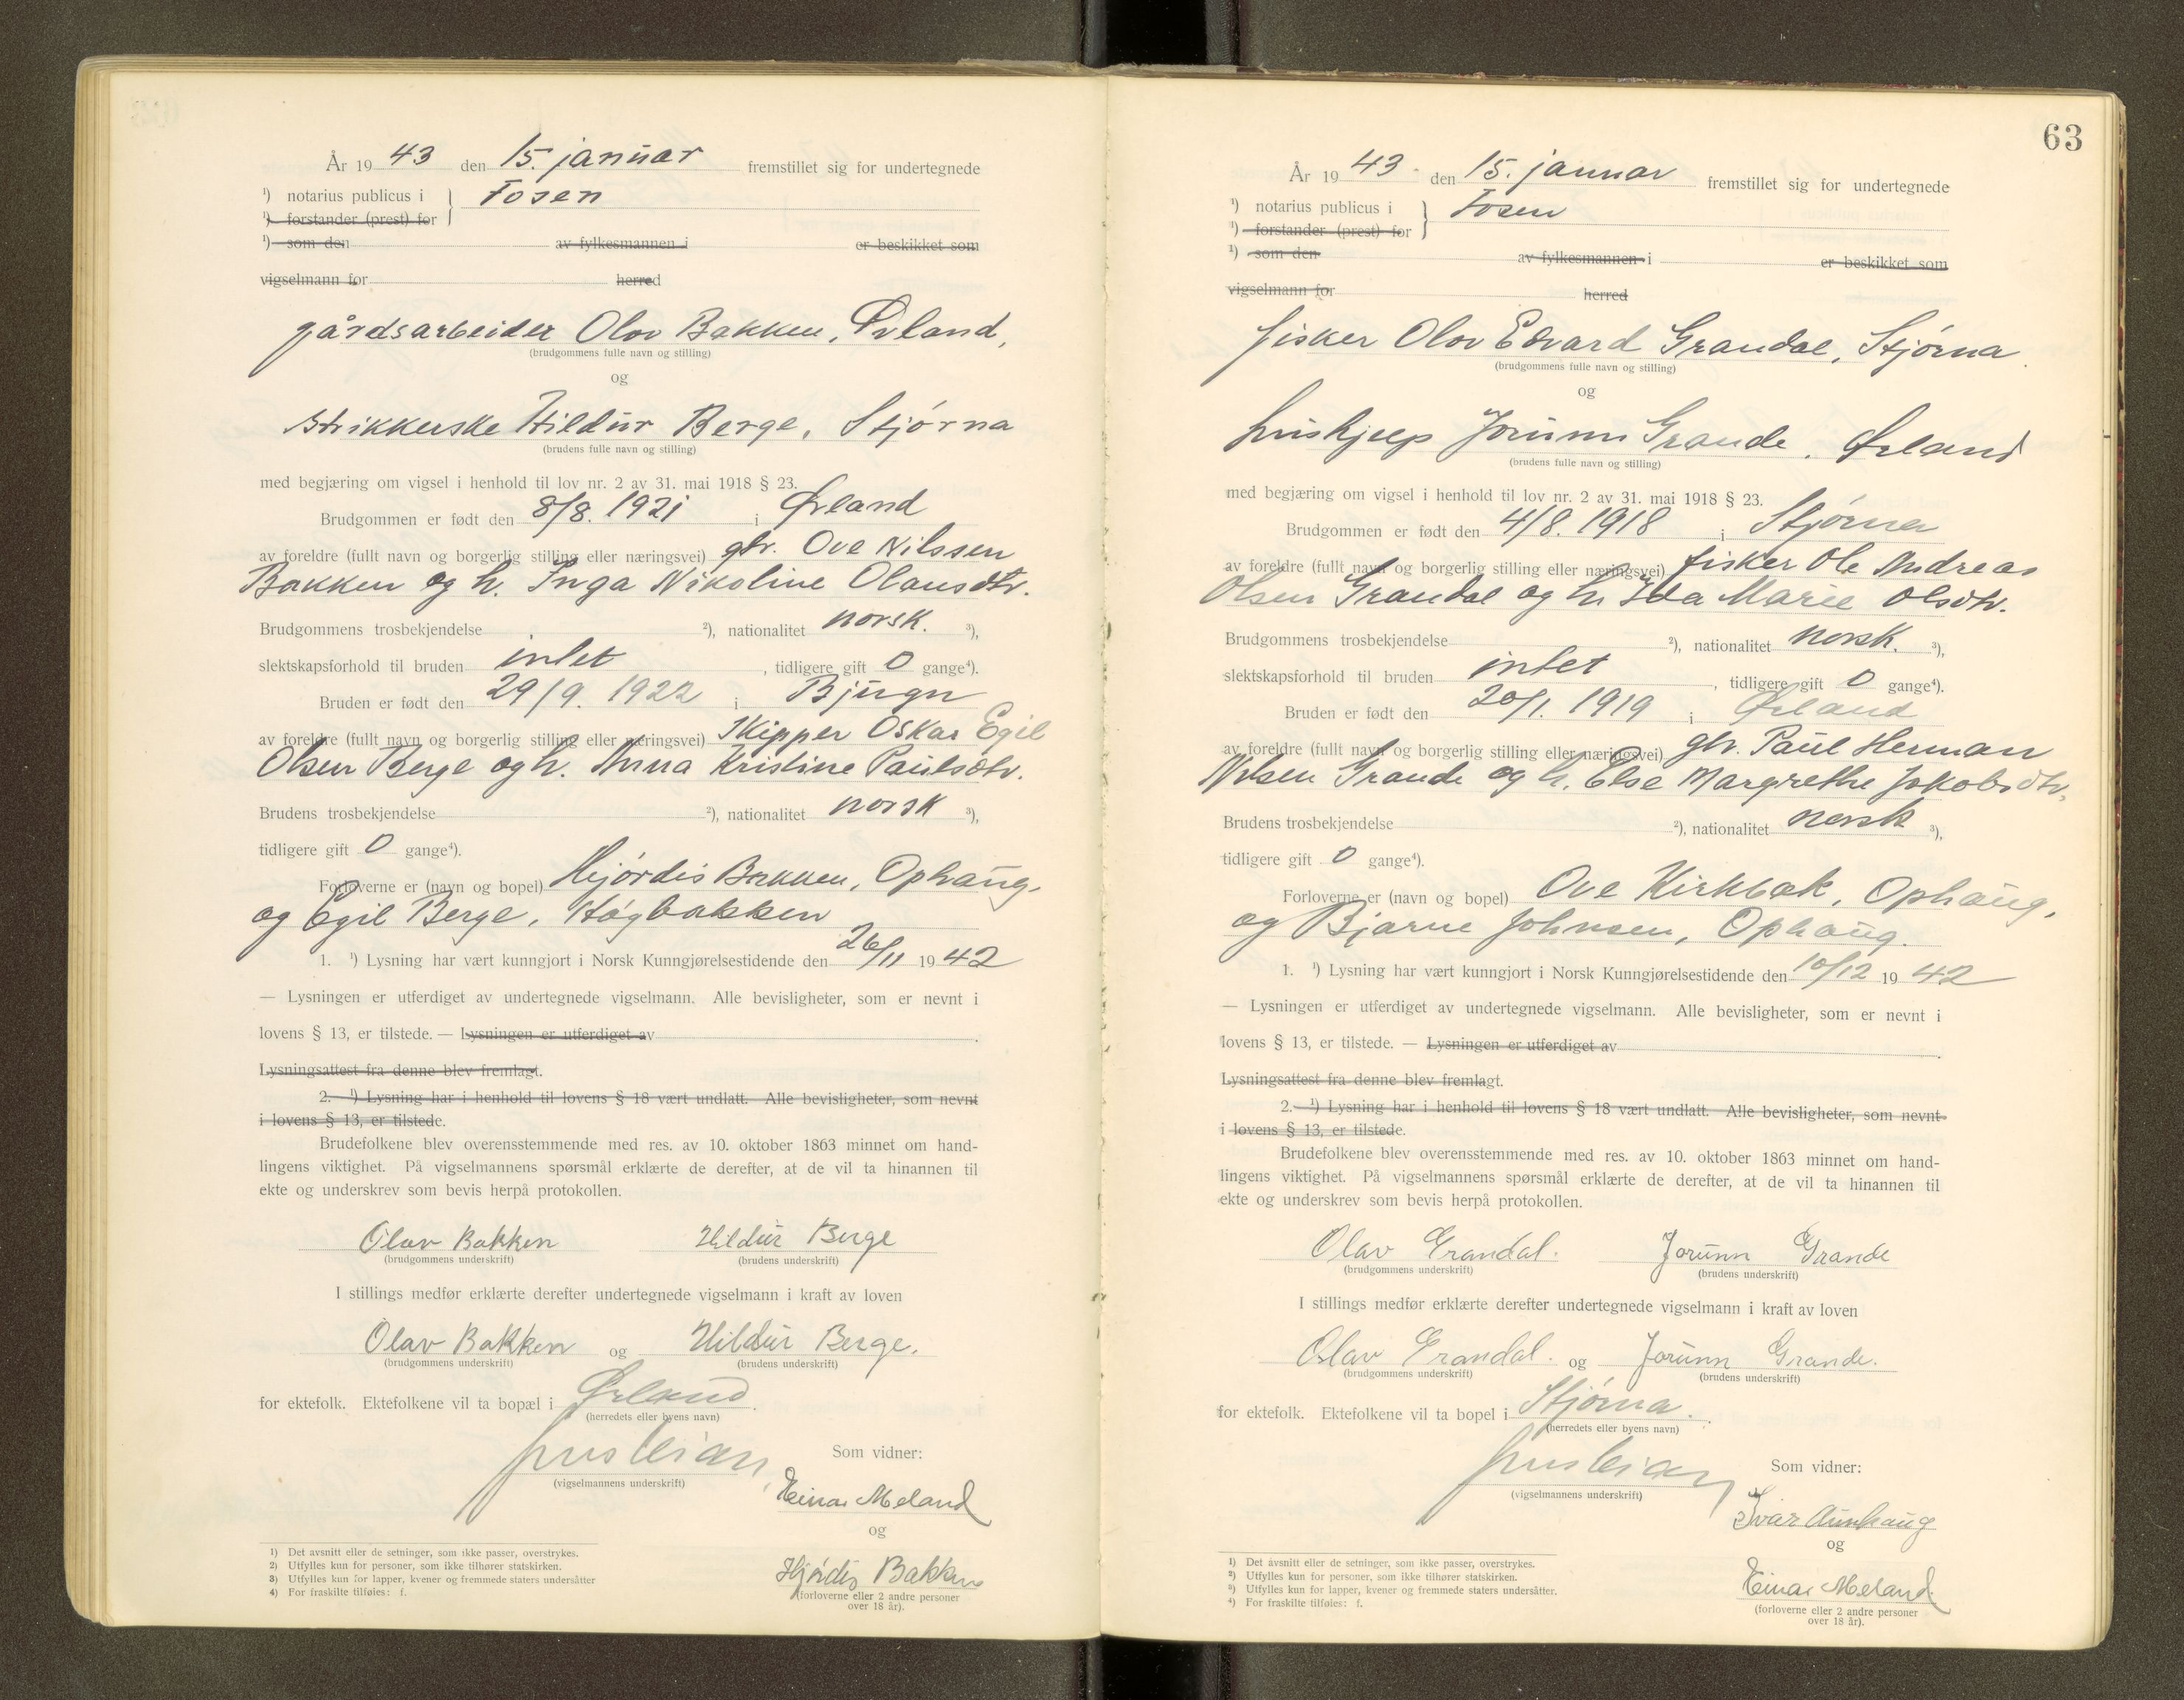 År 1943 den 15. januar fremstillet sig for undertegnede
¹) notarius publicus i } Fosen
¹) forstander (prest) for
¹) som den av fylkesmannen i er beskikket som
vigselmann for herred
gårdsarbeider Olav Bakken, Ørland,
(brudgommens fulle navn og stilling)
og
strikkerske Hildur Berge, Stjørna
(brudens fulle navn og stilling)
med begjæring om vigsel i henhold til lov nr. 2 av 31. mai 1918 § 23.
Brudgommen er født den 8/8. 1921 i Ørland
av foreldre (fullt navn og borgerlig stilling eller næringsvei) gbr. Ove Nilssen
Bakken og h. Inga Nikoline Olausdtr.
Brudgommens trosbekjendelse ²), nationalitet norsk. ³),
slektskapsforhold til bruden intet, tidligere gift 0 gange⁴).
Bruden er født den 29/9. 1922 i Bjugn
av foreldre (fullt navn og borgerlig stilling eller næringsvei) skipper Oskar Egil
Olsen Berge og h. Anna Kristine Paulsdtr.
Brudens trosbekjendelse ²), nationalitet norsk ³),
tidligere gift 0 gange⁴).
Forloverne er (navn og bopel) Hjørdis Bakken, Ophaug,
og Egil Berge, Høgbakken
1. ¹) Lysning har vært kunngjort i Norsk Kunngjørelsestidende den 26/11 1942
— Lysningen er utferdiget av undertegnede vigselmann. Alle bevisligheter, som er nevnt i
lovens § 13, er tilstede. — Lysningen er utferdiget av .
Lysningsattest fra denne blev fremlagt.
2. ¹) Lysning har i henhold til lovens § 18 vært undlatt. Alle bevisligheter, som nevnt
i lovens § 13, er tilstede.
Brudefolkene blev overensstemmende med res. av 10. oktober 1863 minnet om hand-
lingens viktighet. På vigselmannens spørsmål erklærte de derefter, at de vil ta hinannen til
ekte og underskrev som bevis herpå protokollen.
Olav Bakken Hildur Berge
(brudgommens underskrift) (brudens underskrift)
I stillings medfør erklærte derefter undertegnede vigselmann i kraft av loven
Olav Bakken og Hildur Berge.
(brudgommens underskrift) (brudens underskrift)
for ektefolk. Ektefolkene vil ta bopæl i Ørland.
(herredets eller byens navn)
Som vidner:
(vigselmannens underskrift)
Einar Meland
og
Hjørdis Bakken
(forloverne eller 2 andre personer
over 18 år).
1) Det avsnitt eller de setninger, som ikke passer, overstrykes.
2) Utfylles kun for personer, som ikke tilhører statskirken.
3) Utfylles kun for lapper, kvener og fremmede staters undersåtter
4) For fraskilte tilføies: f.
63
År 1943. den 15. januar fremstillet sig for undertegnede
¹) notarius publicus i } Fosen
¹) forstander (prest) for
¹) som den av fylkesmannen i er beskikket som
vigselmann for herred
fisker Olav Edvard Grandal, Stjørna.
(brudgommens fulle navn og stilling)
og
hushjelp Jorunn Grande, Ørland
(brudens fulle navn og stilling)
med begjæring om vigsel i henhold til lov nr. 2 av 31. mai 1918 § 23.
Brudgommen er født den 4/8. 1918 i Stjørna
av foreldre (fullt navn og borgerlig stilling eller næringsvei) fisker Ole Andreas
Olsen Grandal og h. Ida Marie Olsdtr.
Brudgommens trosbekjendelse ²), nationalitet norsk. ³),
slektskapsforhold til bruden intet, tidligere gift 0 gange⁴).
Bruden er født den 20/1. 1919 i Ørland
av foreldre (fullt navn og borgerlig stilling eller næringsvei) gbr. Paul Herman
Nilsen Grande og h. Else Margrethe Jakobsdtr.
Brudens trosbekjendelse ²), nationalitet norsk ³),
tidligere gift 0 gange⁴).
Forloverne er (navn og bopel) Ove Kirkbak, Ophaug,
og Bjarne Johnsen, Ophaug.
1. ¹) Lysning har vært kunngjort i Norsk Kunngjørelsestidende den 10/12 1942
— Lysningen er utferdiget av undertegnede vigselmann. Alle bevisligheter, som er nevnt i
lovens § 13, er tilstede. — Lysningen er utferdiget av .
Lysningsattest fra denne blev fremlagt.
2. ¹) Lysning har i henhold til lovens § 18 vært undlatt. Alle bevisligheter, som nevnt
i lovens § 13, er tilstede.
Brudefolkene blev overensstemmende med res. av 10. oktober 1863 minnet om hand-
lingens viktighet. På vigselmannens spørsmål erklærte de derefter, at de vil ta hinannen til
ekte og underskrev som bevis herpå protokollen.
Olav Grandal. Jorunn Grande
(brudgommens underskrift) (brudens underskrift)
I stillings medfør erklærte derefter undertegnede vigselmann i kraft av loven
Olav Grandal. og Jorunn Grande.
(brudgommens underskrift) (brudens underskrift)
for ektefolk. Ektefolkene vil ta bopel i Stjørna.
(herredets eller byens navn)
Som vidner:
(vigselmannens underskrift)
Ivar Aunhaug
og
Einar Meland
(forloverne eller 2 andre personer
over 18 år).
¹) Det avsnitt eller de setninger, som ikke passer, overstrykes.
²) Utfylles kun for personer, som ikke tilhører statskirken.
³) Utfylles kun for lapper, kvener og fremmede staters undersåtter.
⁴) For fraskilte tilføies: f.